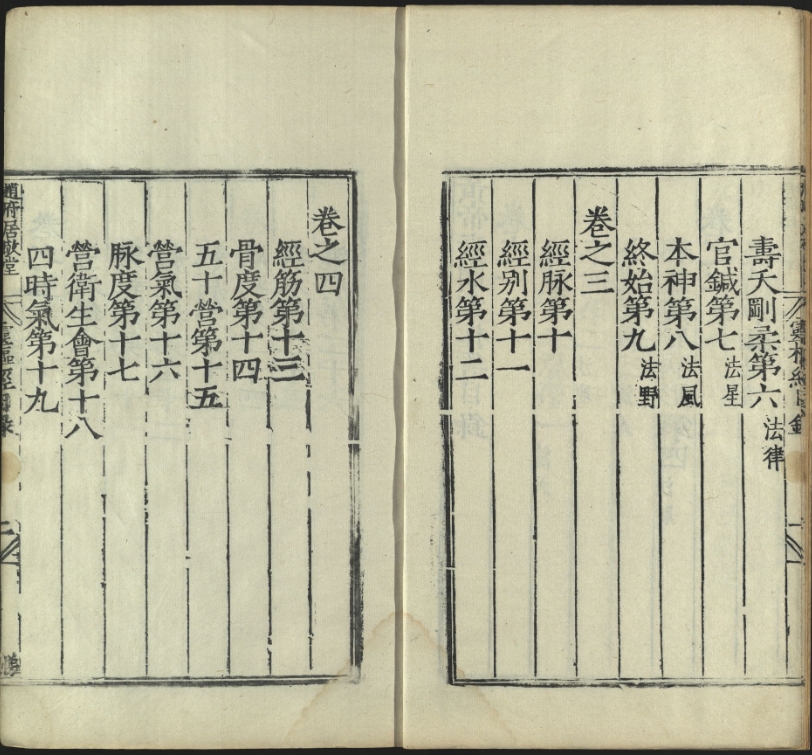 壽夭剛柔第六 法律
官鍼第七 法星
本神第八 法風
終始第九 法野
卷之三
經脉第十
經別第十一
經水第十二
卷之四
經筋第十三
骨度第十四
五十營第十五
營氣第十六
脉度第十七
營衛生會第十八
四時氣第十九
趙府居敬堂
靈樞經目錄